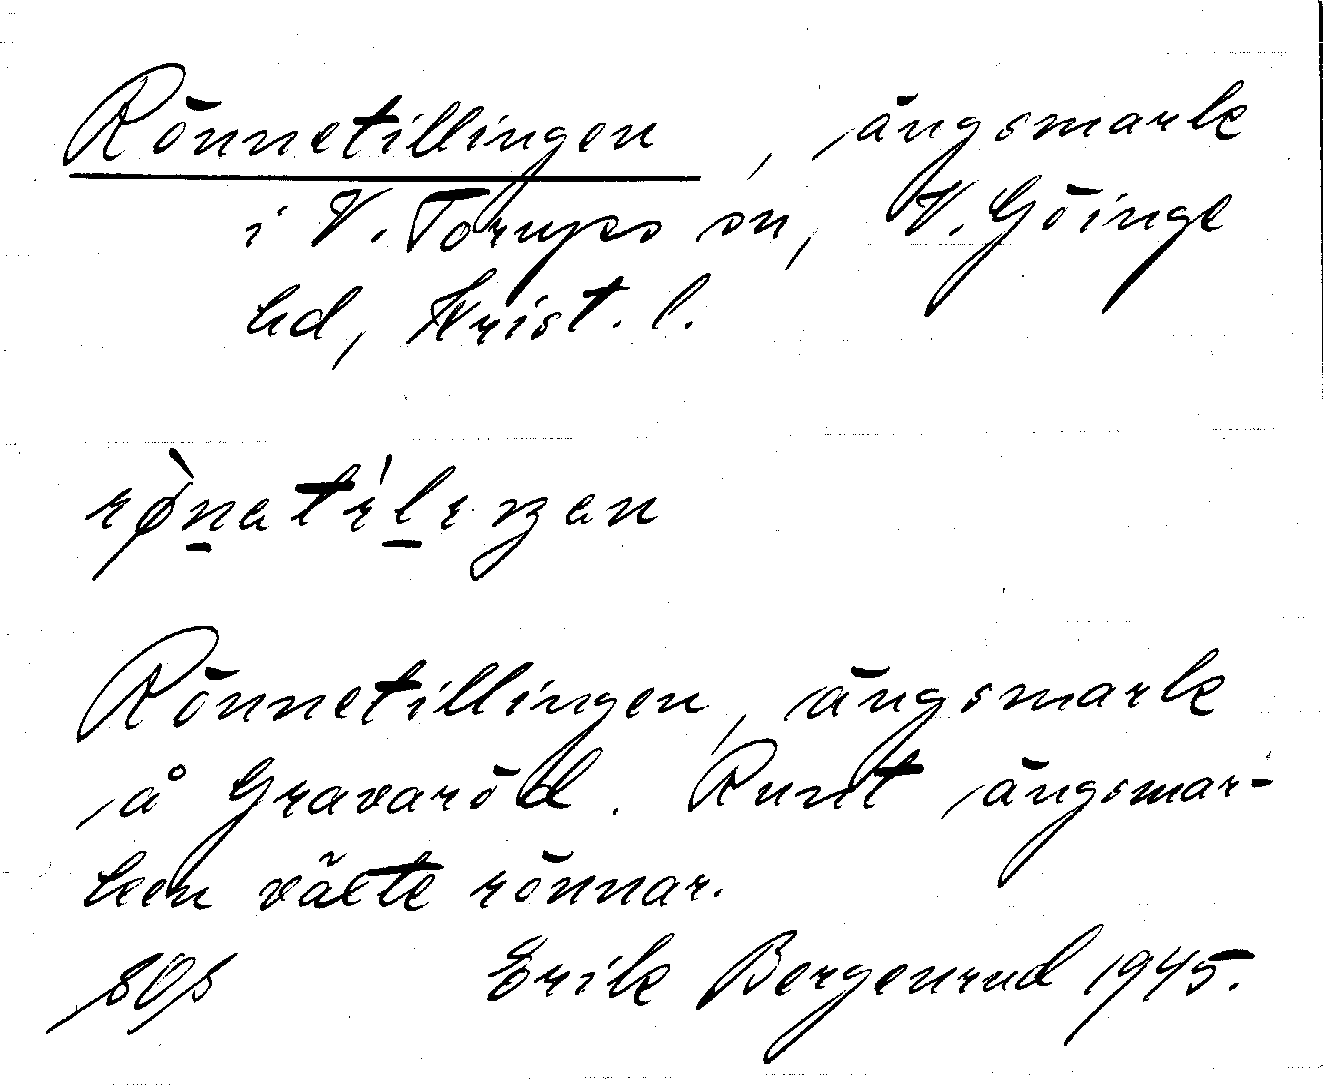 Rönnetillingen, ängsmark
i V. Torups sn, V. Göinge
hd, Krist. l.
rø̀natílıŋan
Rönnetillingen, ängsmark
å Gravaröd. Runt ängsmar-
ken växte rönnar.
Erik Bergenrud 1945.